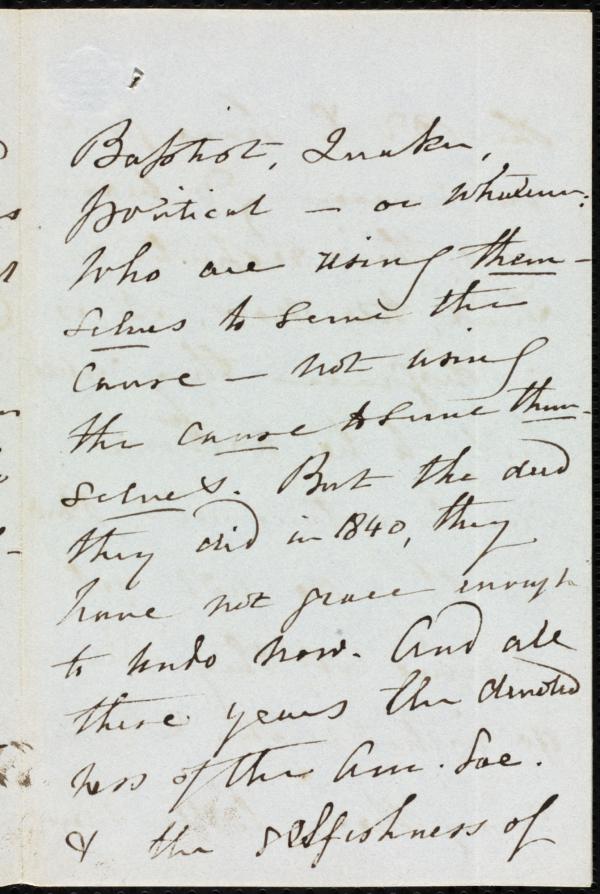 Baptist, Quaker,
political — or whatever:
Who are using them-
selves to serve the
Cause — not using
the cause to serve them-
selves. But the deed
they did in 1840, they
have not grace enough
to undo now. And all
these years the devoted
ness of the Am. Soc.
& the selfishness of